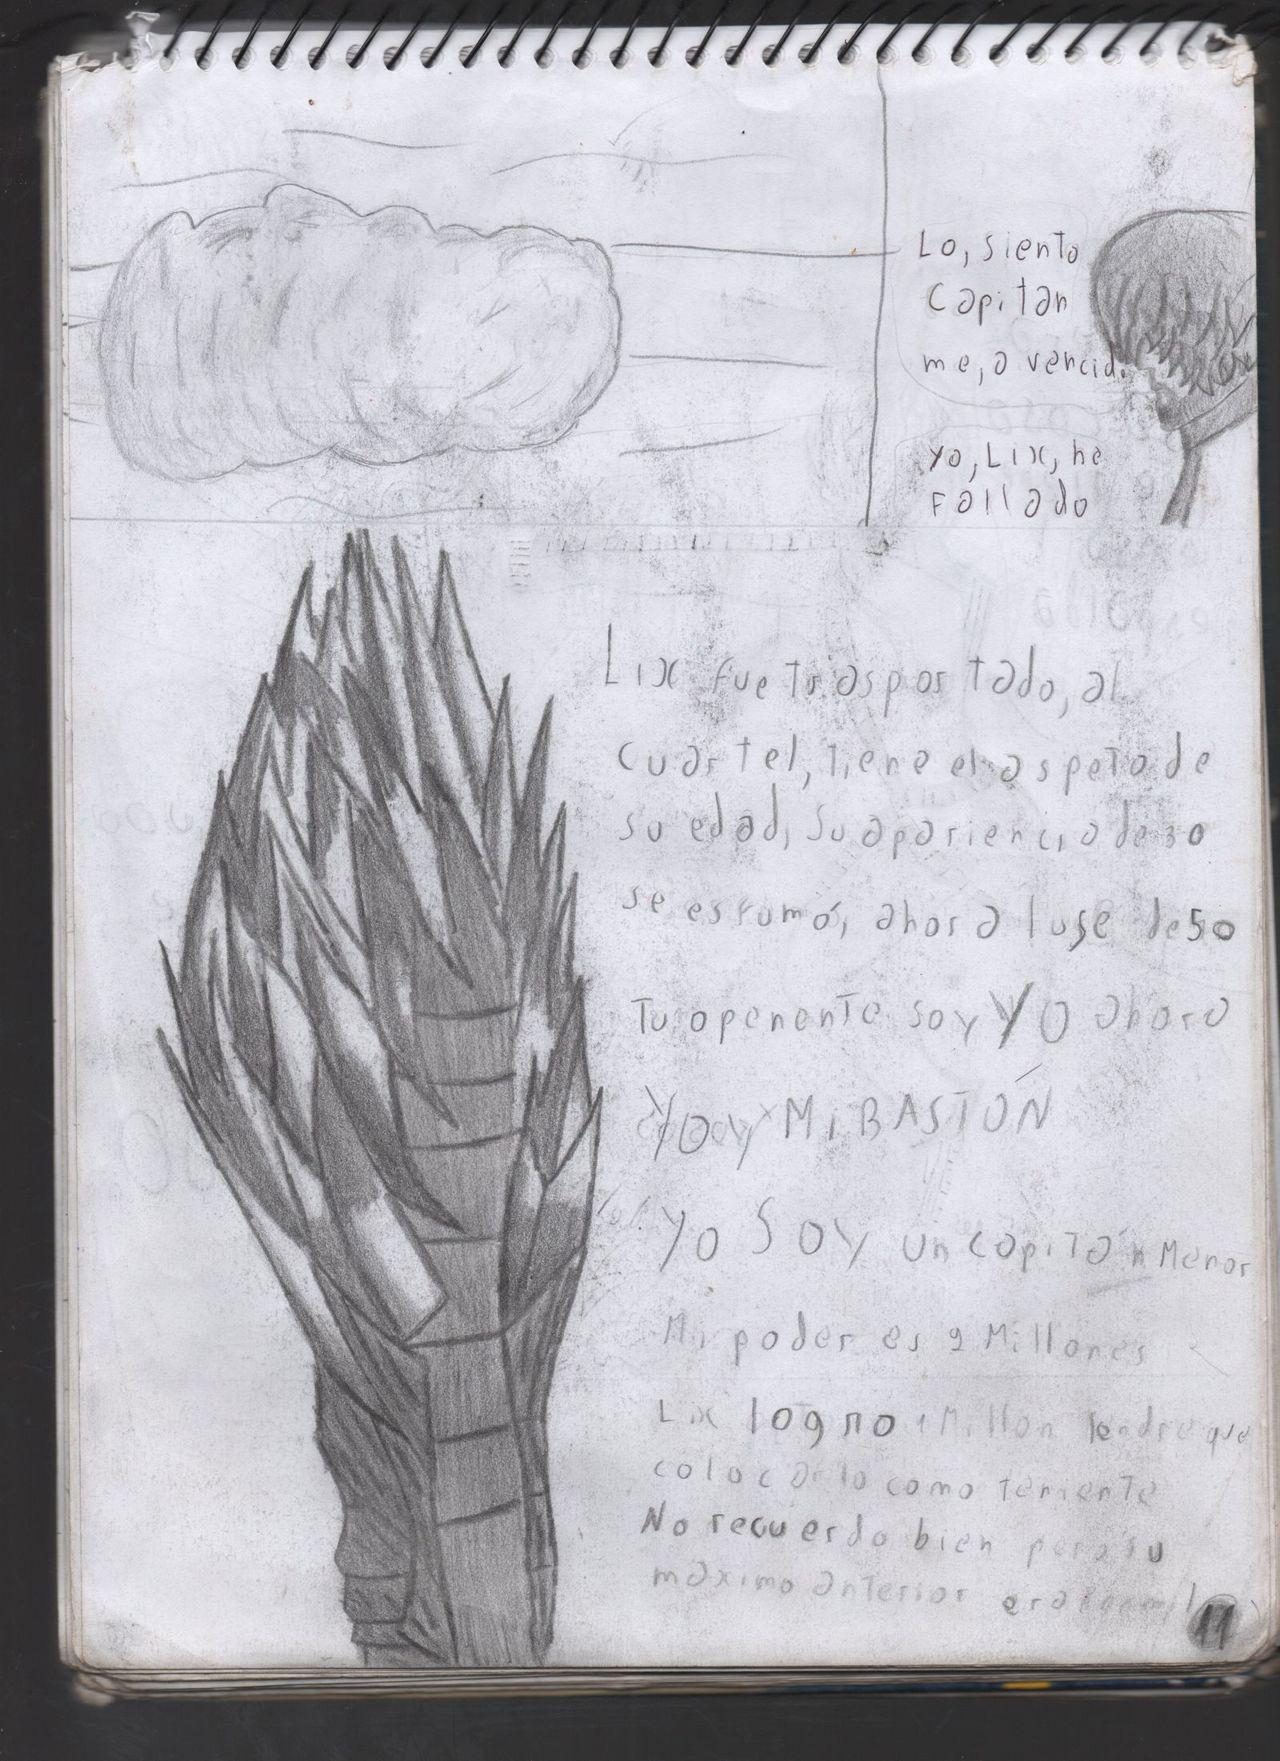 Lo, siento
Capitan
me, a vencido
yo, Lix, he
Fallado
Lix fue trasportado, al
cuartel, tiene el aspeto de
su edad, Su apariencia de 30
se esfumó, ahora luse de 50
Tu openente soy YO ahora
Yo y Mi BASTÓN
Yo SOY un capitán Menor
Mi poder es 2 Millones
Lix logro 1 Millon tendre que
colocarlo como teniente
No recuerdo bien pero su
maximo anterior era
11